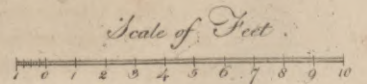 Scale of Feet.
1 0 1 2 3 4 5 6 7 8 9 10